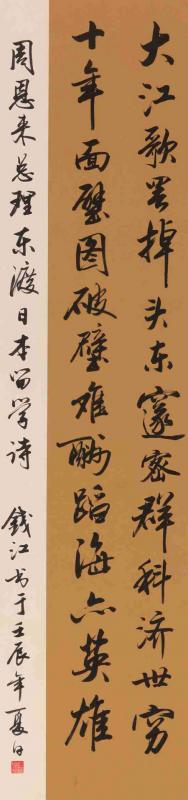 大江歌罢掉头东邃密群科济世穷
十年面壁图破壁难酬蹈海亦英雄
周恩来总理东渡日本留学诗 钱江书于壬辰年夏日